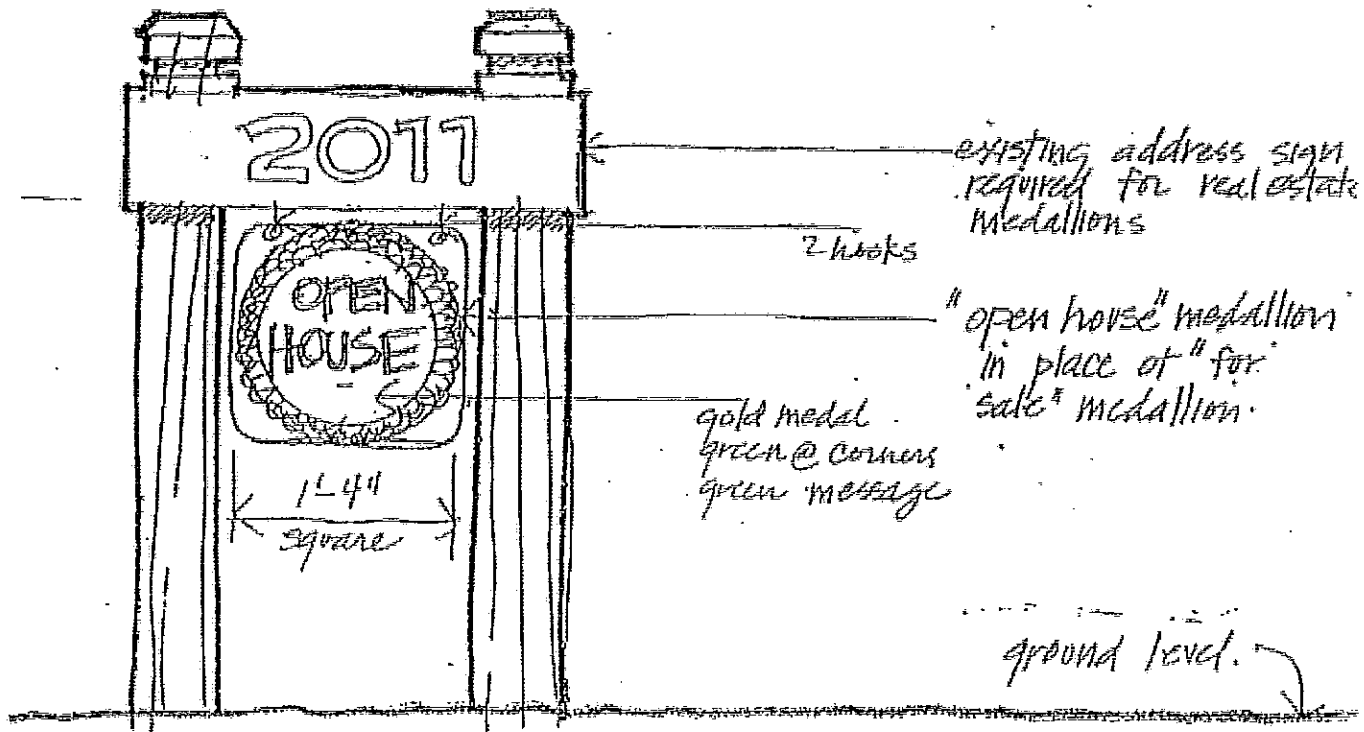 2011
existing address sign
required for real estate
medallions
2 hooks
OPEN
HOUSE
"open house" medallion
in place of "for
sale" medallion.
gold medal
green @ corners
green message
1'-4"
square
ground level.